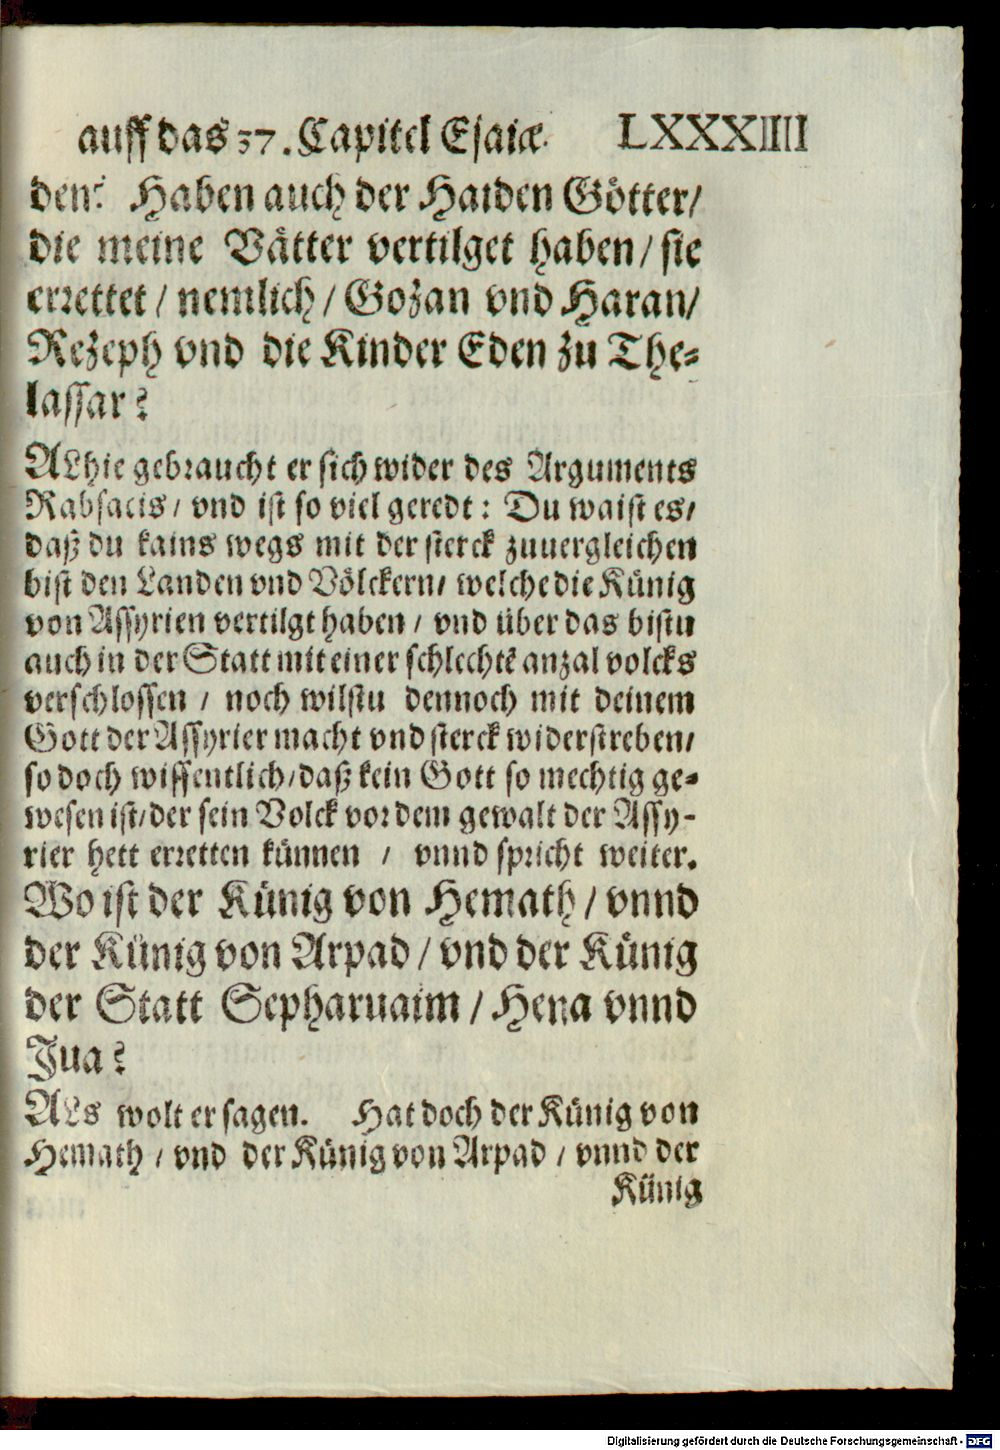 auff das 37. Capitel Esaiæ. LXXXIIII
den? Haben auch der Haiden Götter/
die meine Vätter vertilget haben/ sie
errettet/ nemlich/ Gozan vnd Haran/
Rezeph vnd die Kinder Eden zu The-
lassar?
ALhie gebraucht er sich wider des Arguments
Rabsacis/ vnd ist so viel geredt: Du waist es/
daß du kains wegs mit der sterck zuuergleichen
bist den Landen vnd Völckern/ welche die Künig
von Assyrien vertilgt haben/ vnd über das bistu
auch in der Statt mit einer schlechtē anzal volcks
verschlossen/ noch wilstu dennoch mit deinem
Gott der Assyrier macht vnd sterck widerstreben/
so doch wissentlich/ daß kein Gott so mechtig ge-
wesen ist/ der sein Volck vor dem gewalt der Assy-
rier hett erretten künnen/ vnnd spricht weiter.
Wo ist der Künig von Hemath/ vnnd
der Künig von Arpad/ vnd der Künig
der Statt Sepharuaim/ Hena vnnd
Jua?
ALs wolt er sagen. Hat doch der Künig von
Hemath/ vnd der Künig von Arpad/ vnnd der
Künig
Digitalisierung gefördert durch die Deutsche Forschungsgemeinschaft - DFG